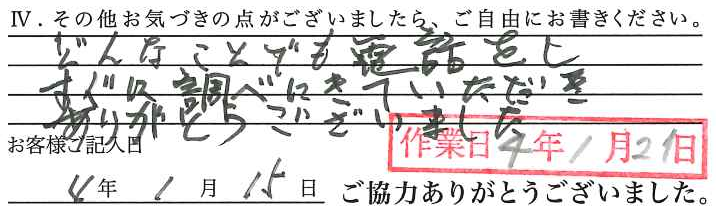 Ⅳ．その他お気づきの点がございましたら、ご自由にお書きください。
どんなことでも電話をし
すぐに調べにきていただき
ありがとうございました
お客様ご記入日
作業日 4年 1月21日
4年 1月 15日 ご協力ありがとうございました。